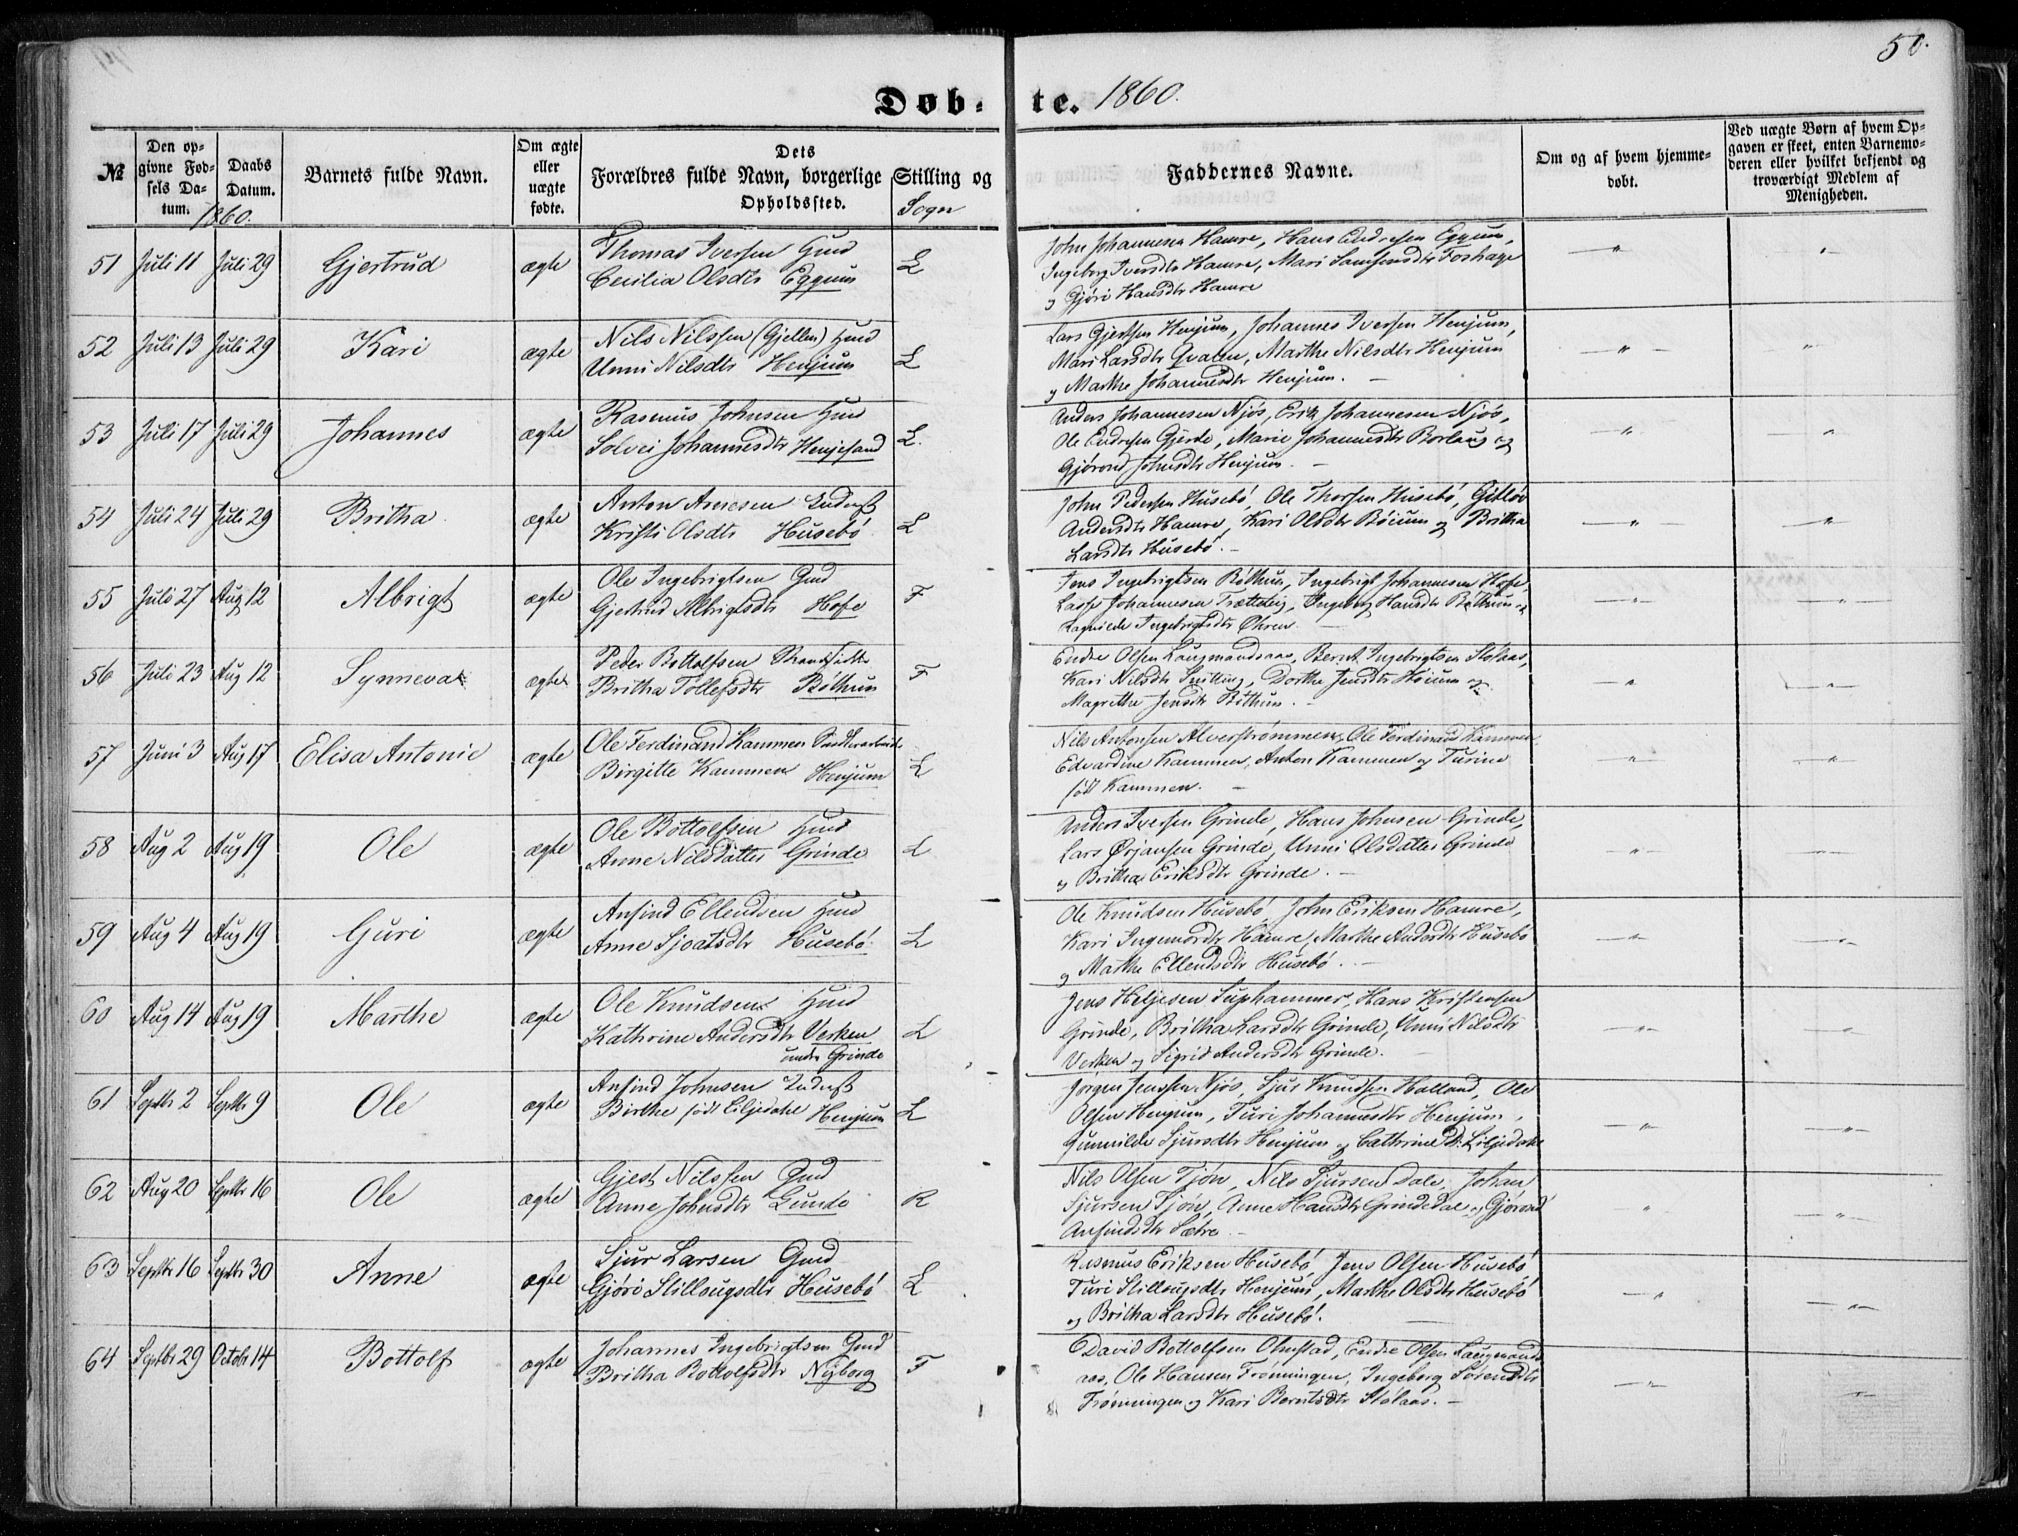 50.
Døb- te. 1860.
№
Den op-
givne Fød-
sels Da-
tum.
Daabs
Datum.
1860.
Barnets fulde Navn.
Om ægte
eller
uægte
fødte.
Dets
Forældres fulde Navn, borgerlige Stilling og
Opholdssted.
Sogn
Faddernes Navne.
Om og af hvem hjemme-
døbt.
Ved uægte Børn af hvem Op-
gaven er skeet, enten Barnemo-
deren eller hvilket bekjendt og
troværdigt Medlem af
Menigheden.
51 Juli 11 Juli 29 Gjertrud ægte
Thomas Iversen Hmd
Cecilia Olsdtr Eggum L
John Johannesen Hamre, Hans Endresen Eggum,
Ingeborg Iversdtr Hamre, Mari Samsonsdtr Foshage
og Gjøri Hansdtr Hamre
52 Juli 13 Juli 29 Kari ægte
Nils Nilssen (Gjellen) Hmd
Unni Nilsdtr Henjum L
Lars Gjertsen Henjum, Johannes Iversen Henjum,
Mari Larsdtr Qvalen, Marthe Nilsdtr Henjum
og Marthe Johannesdtr Henjum. —
53 Juli 17 Juli 29 Johannes ægte
Rasmus Johnsen Hmd
Solvei Johannesdtr Henjesand L.
Anders Johannesen Njøs, Erik Johannesen Njøs,
Ole Endresen Gjerde, Marie Johannesdtr Borlaug og
Gjørond Johnsdtr Henjum. —
54 Juli 24 Juli 29 Britha ægte
Anton Arnesen Inderst
Kristi Olsdtr Husebö L
John Pedersen Husebö, Ole Thorsen Husebö, Gitløv
Andersdtr Hamre, Kari Olsdtr Böium og Britha
Larsdtr Husebö. —
55 Juli 27 Aug 12 Albrigt ægte
Ole Ingebrigtsen Gmd
Gjertrud Albrigtsdtr Hofe F
Jens Ingebrigtsen Böthun, Ingebrigt Johannesen Hofe,
Lasse Johannesen Trætteteig, Ingeborg Hansdtr Böthun og
Ragnilde Ingebrigtsdtr Öhren. —
56 Juli 23 Aug 12 Synneva ægte
Peder Bottolfsen Strandsidder
Britha Tollefsdtr Böthun F
Endre Olsen Laugmandsaas, Bernt Ingebrigtsen Stölaas,
Kari Nilsdtr Snitting, Dorthe Jensdtr Höium og
Magrethe Jensdtr Böthun. —
57 Juni 3 Aug 17 Elisa Antonie ægte
Ole Ferdinand Kammen
Birgitte Kammen Henjum L
Nils Antonsen Alverströmmen, Ole Ferdinand Kammen
Edvardine Kammen, Anton Kammen og Turine
født Kammen. —
58 Aug 2 Aug 19 Ole ægte
Ole Bottolfsen Hmd
Anne Nilsdatter Grinde L
Anders Iversen Grinde, Hans Johnsen Grinde,
Lars Ørjansen Grinde, Unni Olsdatter Grinde
og Britha Eriksdtr Grinde. —
59 Aug 4 Aug 19 Guri ægte
Anfind Ellendsen Hmd
Anne Sjoatsdtr Husebö. L
Ole Knudsen Husebö, John Eriksen Hamre,
Kari Ingemorsdtr Hamre, Marthe Andersdtr Husebö
og Marthe Ellendsdtr Husebö. —
60 Aug 14 Aug 19 Marthe ægte
Ole Knudsen Hmd
Kathrine Andersdtr Verken
under Grinde L
Jens Heljesen Suphammer, Hans Kristensen
Grinde, Britha Larsdtr Grinde, Unni Nilsdtr
Verken og Sigrid Andersdtr Grinde.
61 Septbr 2 Septbr 9 Ole ægte
Anfind Johnsen Inderst
Birthe født Liljedahl Henjum L
Jørgen Jenssen Njös, Sjur Knudsen Holland, Ole
Olsen Henjum, Turi Johannesdtr Henjum,
Gunnilde Sjursdtr Henjum og Cathrine D. Liljedahl
62 Aug 20 Septbr 16 Ole ægte
Gjest Nilssen Gmd
Anne Johnsdtr Gunde R
Nils Olsen Tjön, Nils Sjursen Dale, Johan
Sjursen Tjön, Anne Hansdtr Grindedal og Gjørond
Anfindsdtr Sætre.
63 Septbr 16 Septbr 30 Anne ægte
Sjur Larsen Gmd
Gjøri Stillougsdtr Husebö L
Rasmus Eriksen Husebö, Jens Olsen Husebö
Turi Stillougsdtr Henjum, Marthe Olsdtr Husebö
og Britha Larsdtr Husebö.
64 Septbr 29 Octobr 14 Bottolf ægte
Johannes Ingebrigtsen Gmd
Britha Bottolfsdtr Nyborg F
David Bottolfsen Ohnstad, Endre Olsen Laugmands
aas, Ole Hansen Frønningen, Ingeborg Sørensdtr
Frønningen og Kari Berntsdtr Stölaas. —